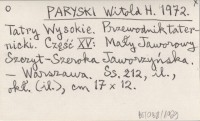 O PARYSKI Witold H. 1972.
Tatry Wysokie. Przewodnik tater-
nicki. Część XV: Mały Jaworowy
Szczyt-Szeroka Jaworzyńska.
- Warszawa. Ss. 212, il.,
okł. (il.), cm 17 x 12.